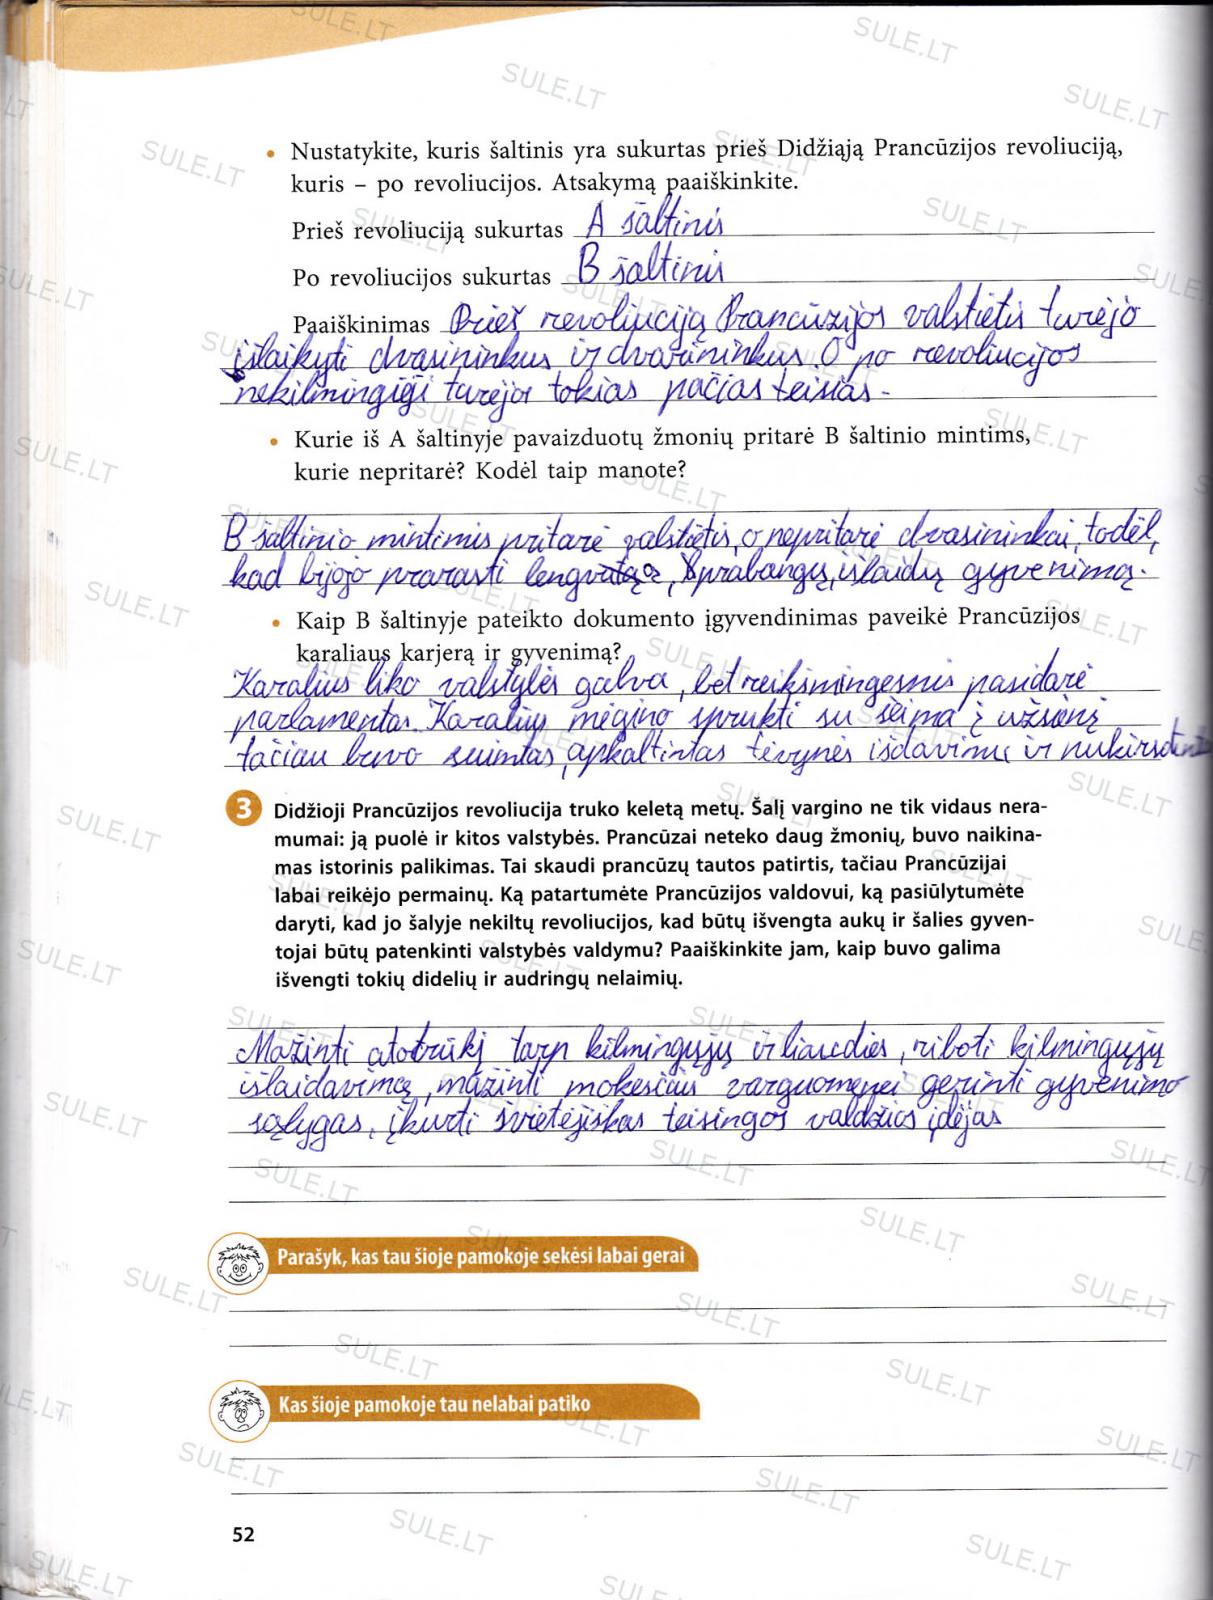 • Nustatykite, kuris šaltinis yra sukurtas prieš Didžiąją Prancūzijos revoliuciją,
kuris – po revoliucijos. Atsakymą paaiškinkite.
Prieš revoliuciją sukurtas A šaltinis
Po revoliucijos sukurtas B šaltinis
Paaiškinimas Prieš revoliuciją Prancūzijos valstietis turėjo
išlaikyti dvasininkus ir dvarininkus. O po revoliucijos
nekilmingieji turėjo tokias pačias teisias.
• Kurie iš A šaltinyje pavaizduotų žmonių pritarė B šaltinio mintims,
kurie nepritarė? Kodėl taip manote?
B šaltinio mintimis pritarė valstietis, o nepritarė dvasininkai, todėl,
kad bijojo prarasti prabangų, išlaidų gyvenimą.
• Kaip B šaltinyje pateikto dokumento įgyvendinimas paveikė Prancūzijos
karaliaus karjerą ir gyvenimą?
Karalius liko valstybės galva, bet reikšmingesnis pasidarė
parlamentas. Karalius mėgino sprukti su šeima į užsienį
tačiau buvo suimtas, apkaltintas tėvynės išdavimu ir
3 Didžioji Prancūzijos revoliucija truko keletą metų. Šalį vargino ne tik vidaus nera-
mumai: ją puolė ir kitos valstybės. Prancūzai neteko daug žmonių, buvo naikina-
mas istorinis palikimas. Tai skaudi prancūzų tautos patirtis, tačiau Prancūzijai
labai reikėjo permainų. Ką patartumėte Prancūzijos valdovui, ką pasiūlytumėte
daryti, kad jo šalyje nekiltų revoliucijos, kad būtų išvengta aukų ir šalies gyven-
tojai būtų patenkinti valstybės valdymu? Paaiškinkite jam, kaip buvo galima
išvengti tokių didelių ir audringų nelaimių.
Mažinti atotrūkį tarp kilmingųjų ir liaudies, riboti kilmingųjų
išlaidavimą, mažinti mokesčius varguomenei gerinti gyvenimo
sąlygas, įkurti švietėjiškas teisingos valdžios idėjas
Parašyk, kas tau šioje pamokoje sekėsi labai gerai
Kas šioje pamokoje tau nelabai patiko
52
SULE.LT